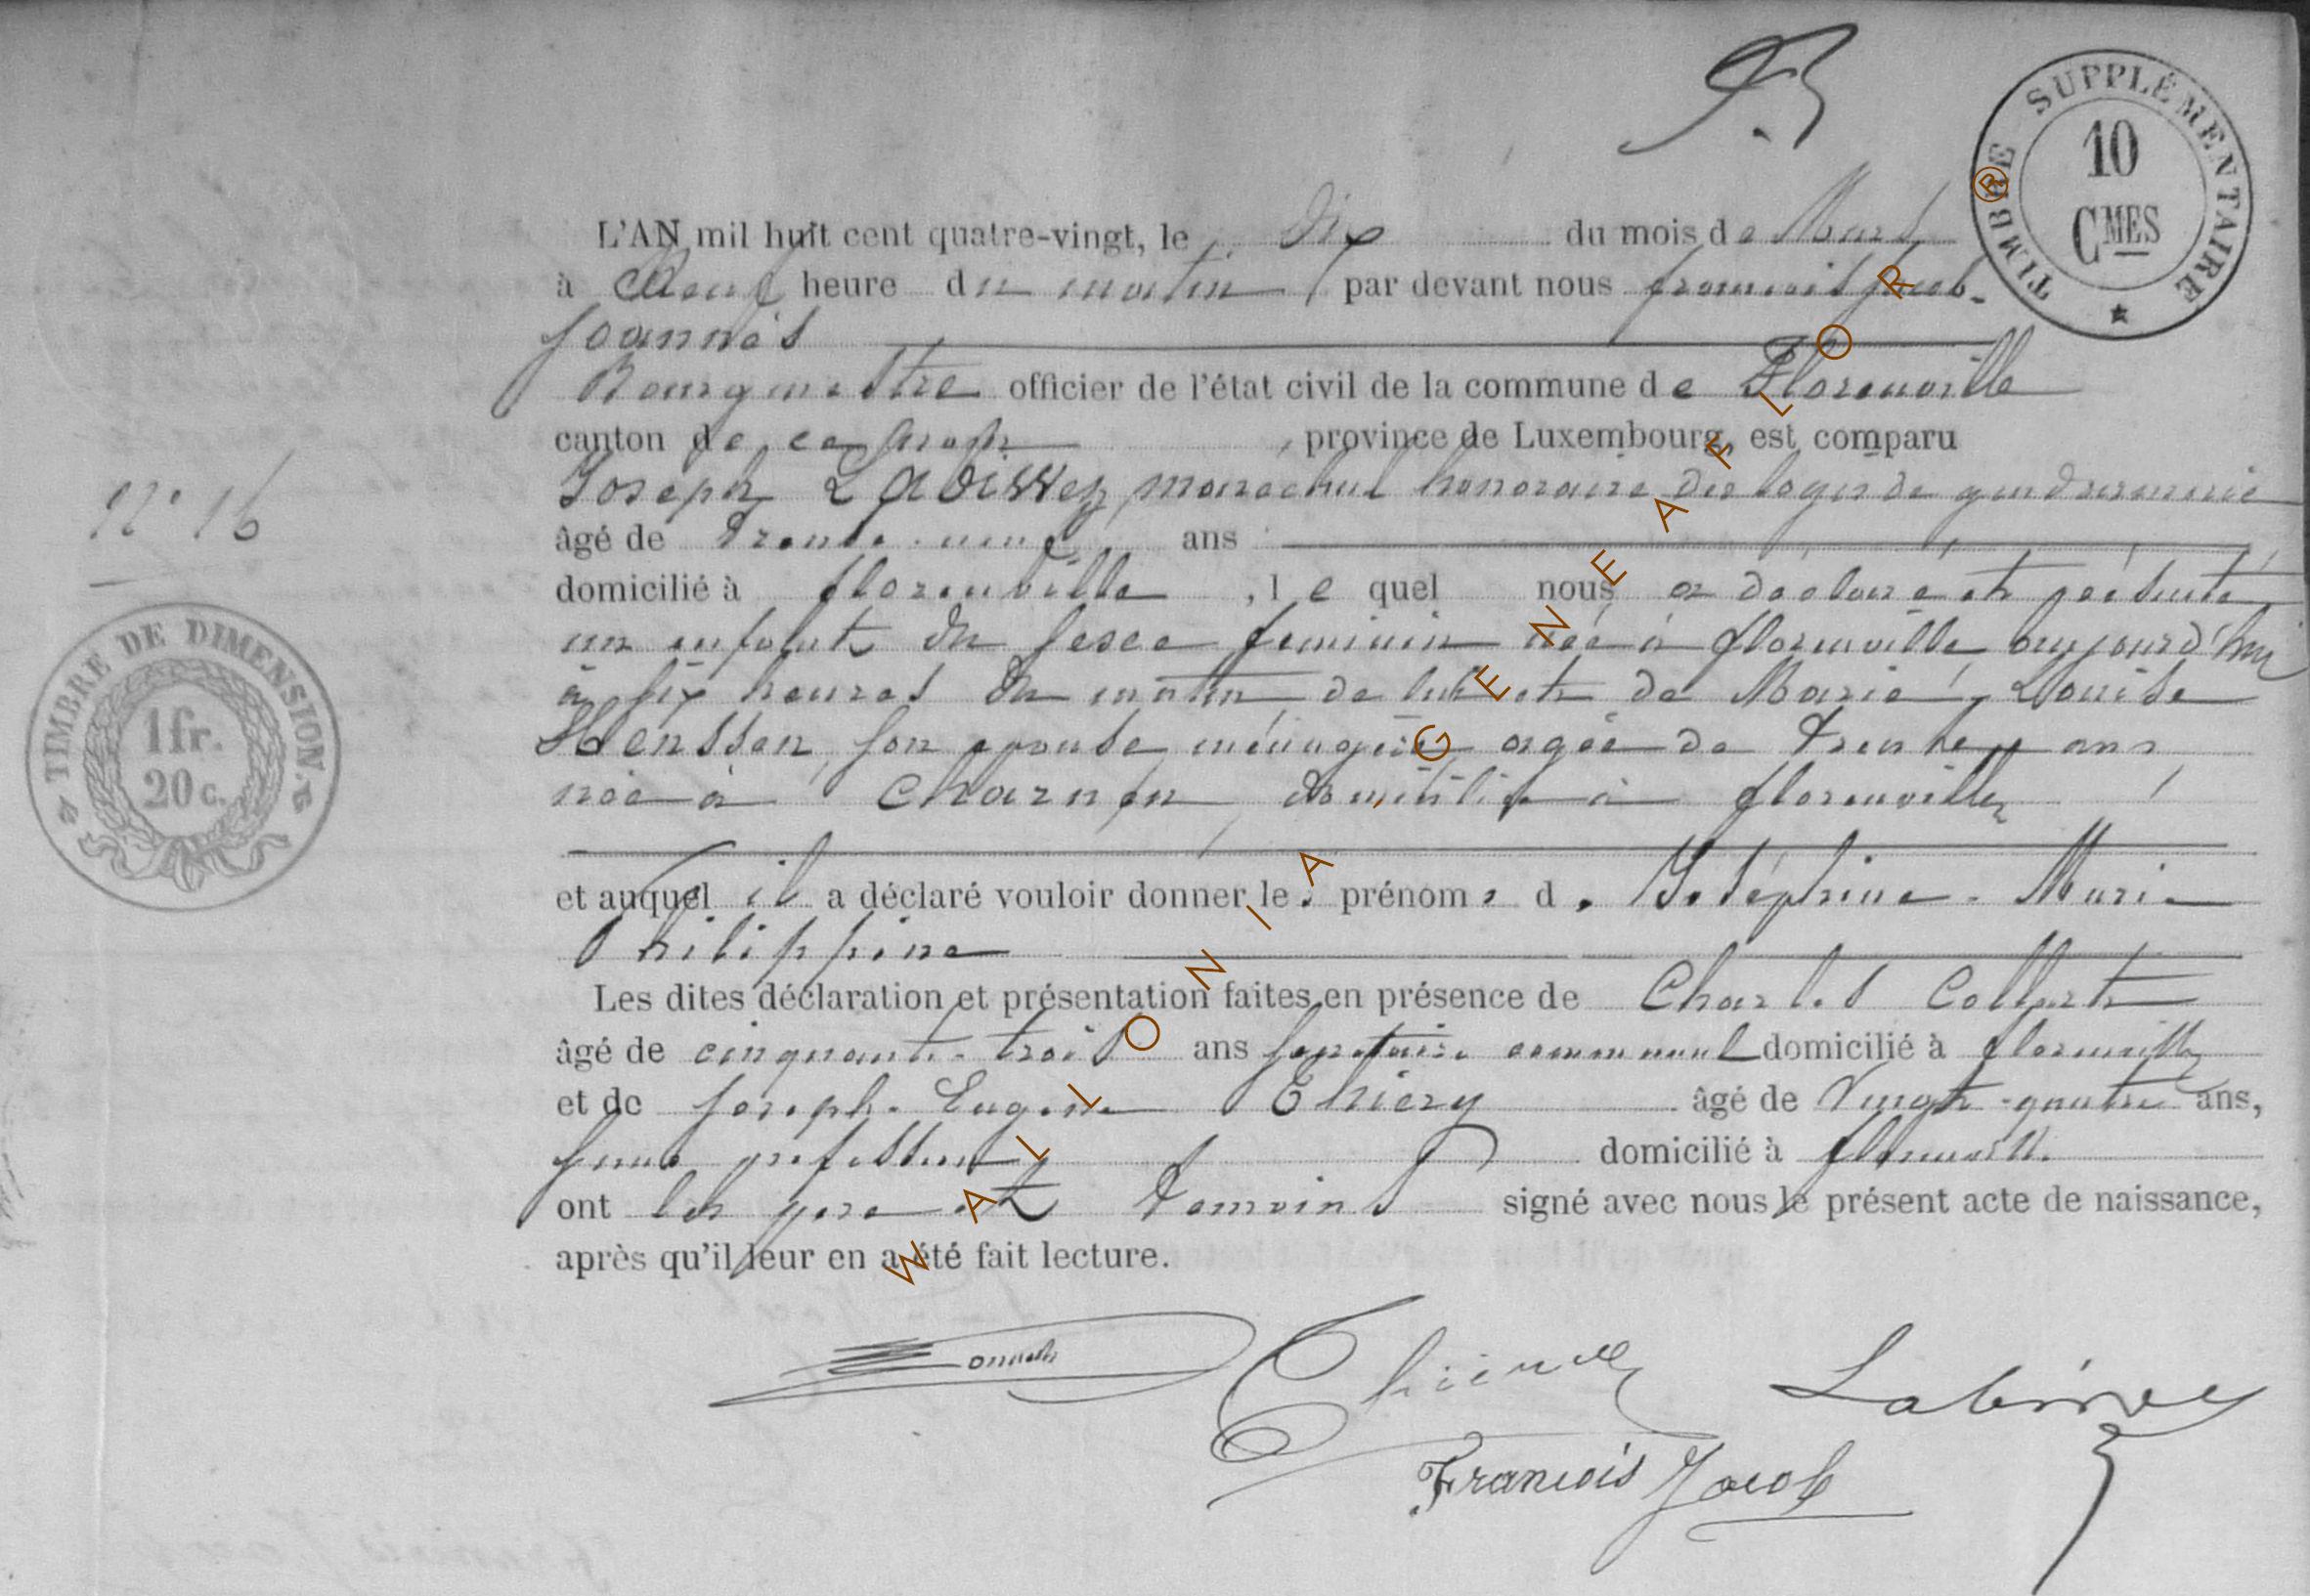 TIMBRE SUPPLÉMENTAIRE
10
CMES
L'AN mil huit cent quatre-vingt, le dix du mois de Mars
à Neuf heure du matin par devant nous francois Jacob-
Joannès
Bourgmestre officier de l'état civil de la commune de Florenville
canton de ce nom, province de Luxembourg, est comparu
Joseph Laoisset, marechal honoraire des logis de gendarmerie
N° 16
âgé de Trente-neuf ans
domicilié à florenville, lequel nous a déclaré et présenté
un enfant du sexe feminin née à florenville aujourd'hui
à six heures du matin, de lui et de Marie, Louise
Henssen, son epouse ménagère, agée de trente ans
née à domiciliée à florenville
TIMBRE DE DIMENSION.
1fr.
20 c.
et auquel il a déclaré vouloir donner les prénoms de Joséphine-Marie
Philippine
Les dites déclaration et présentation faites en présence de Charles Collart
âgé de cinquante-trois ans secrétaire communal domicilié à florenville
et de Joseph-Eugene Thiery âgé de Vingt-quatre ans,
professeur domicilié à florenville
ont les pere et temoins signé avec nous le présent acte de naissance,
après qu'il leur en a été fait lecture.
Thiery
Francois Jacob
WALLONIA, GENEAFLOR ®